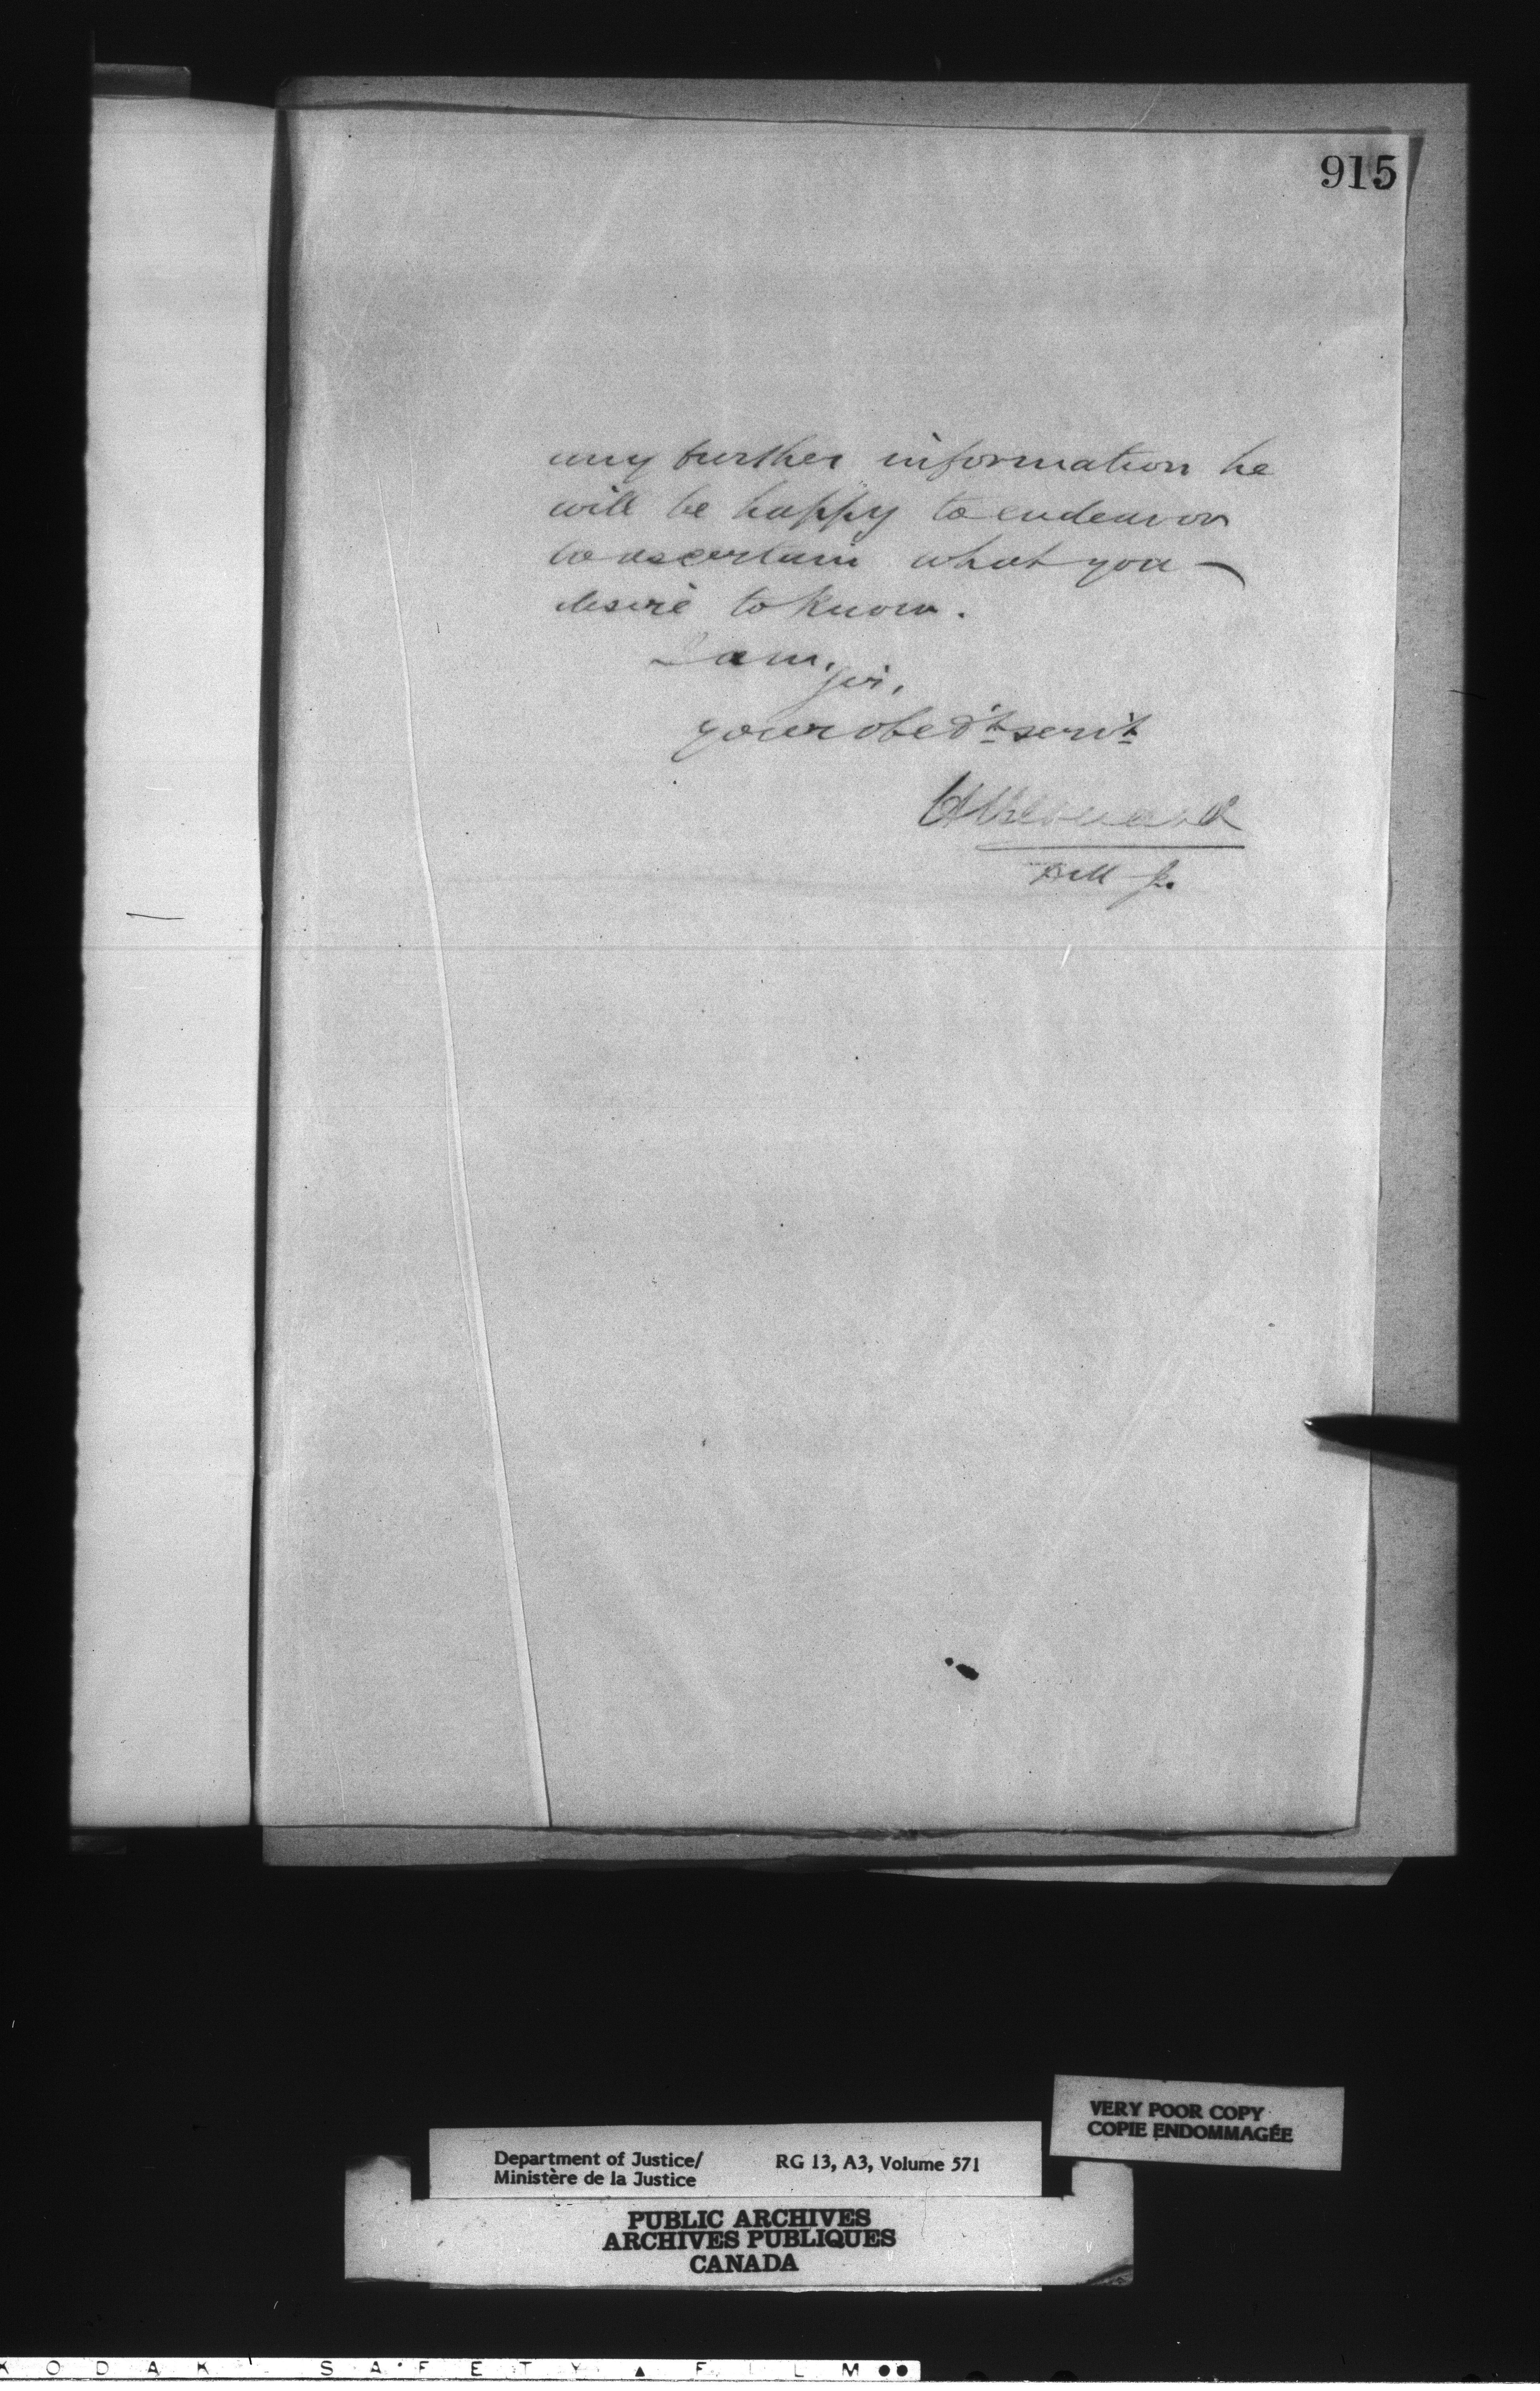 915
any further information he
will be happy to endeavor
to ascertain what you
desire to know.
I am,
Sir,
your obed't serv't
D M J.
VERY POOR COPY
COPIE ENDOMMAGÉE
Department of Justice/ RG 13, A3, Volume 571
Ministère de la Justice
PUBLIC ARCHIVES
ARCHIVES PUBLIQUES
CANADA
KODAK SAFETY FILM